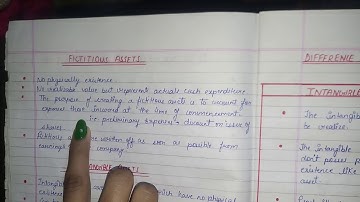 FICTITIOUS ASSETS
No physically existence.
No realisable value but represent actual cash expenditure
The purpose of creating a fictitious assets is to account for
expenses those incurred at the time of commencement.
i.e preliminary expenses + discount on issue of
shares
Fictitious written off as soon as possible from
earnings company.
ASSETS
Intangible which have no physical
DIFFERENCE
INTANGIBLE
The intangible
be creative.
The intangible
don't posses
existence like
asset.